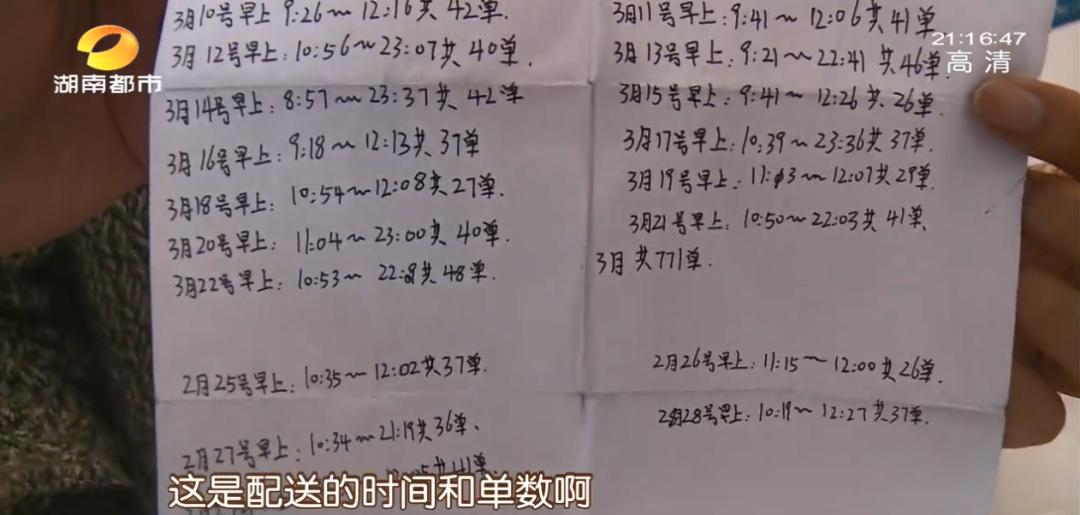 3月10号早上9:26~12:16共42单.
3月11号早上:9:41~12:06共41单
21:16:47
高清
湖南都市
3月12号早上:10:56~23:07共40单.
3月13号早上:9:21~22:41共46单.
3月14号早上:8:57~23:37共42单
3月15号早上:9:41~12:26共26单.
3月16号早上:9:18~12:13共37单
3月17号早上:10:39~23:36共37单.
3月18号早上:10:54~12:08共27单.
3月19号早上:11:03~12:07共29单.
3月20号早上:11:04~23:00共40单.
3月21号早上:10:50~22:03共41单、
3月22号早上:10:53~22:8共48单.
3月共771单.
2月25号早上:10:35~12:02共37单.
2月26号早上:11:15~12:00共26单.
2月27号早上:10:34~21:19共36单、
2月28号早上:10:19~12:27共37单.
共41单.
这是配送的时间和单数啊